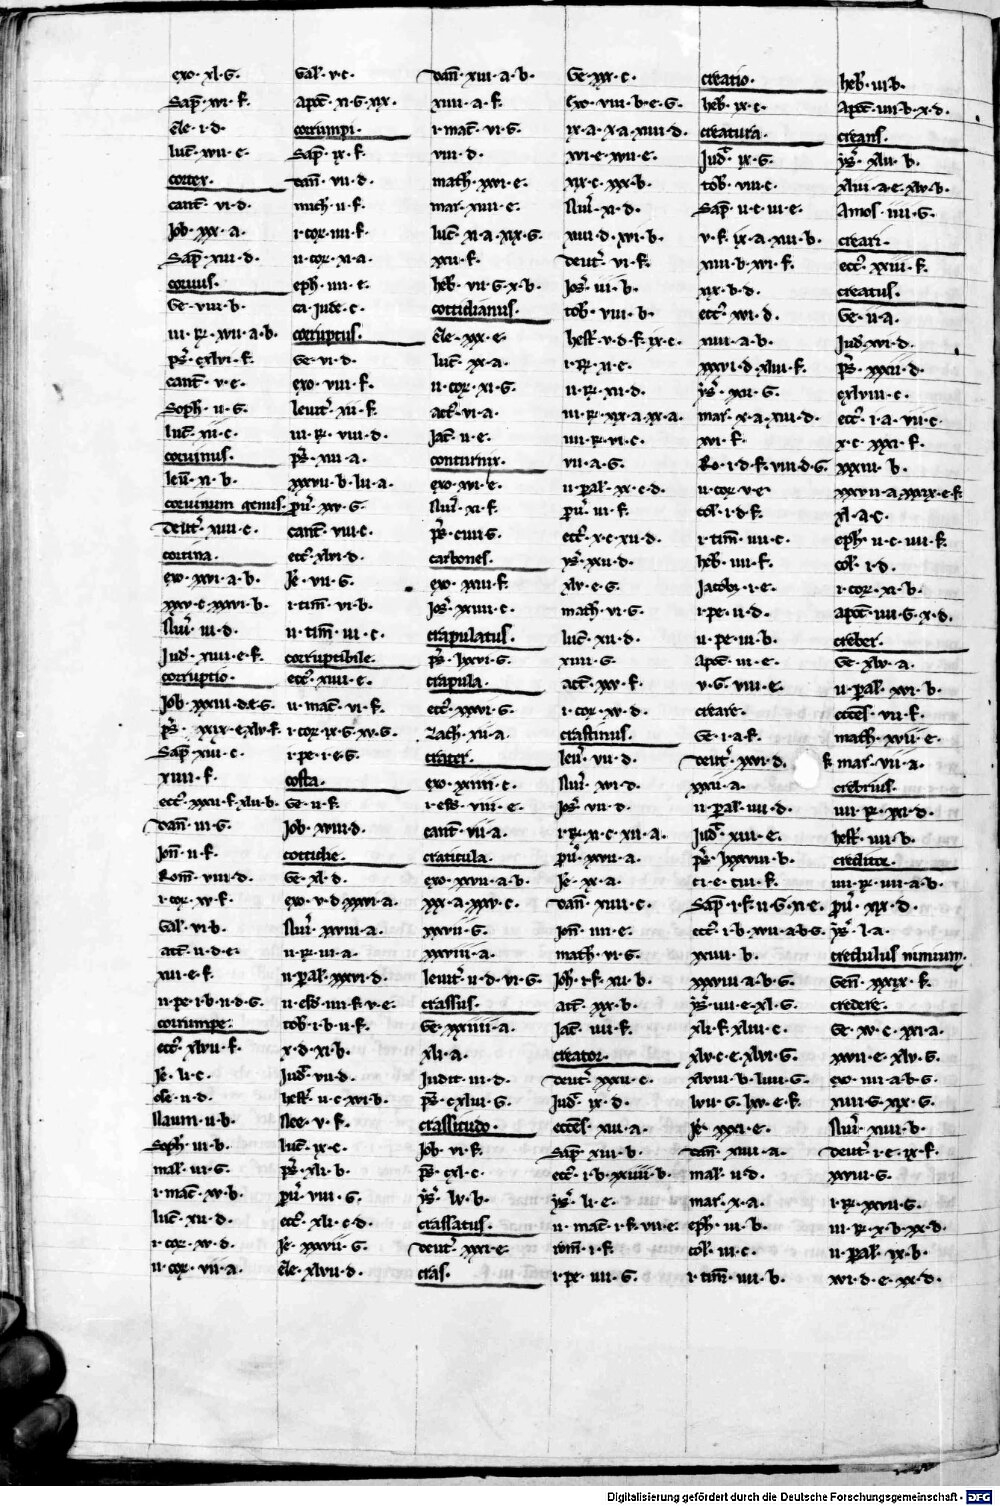 exo · xl · G ·
Sap · xi · f ·
luc · xvii · c ·
cortex ·
cant · vi · d ·
Job · xxx · a ·
Sap · xiii · d ·
coruus ·
Ge · viii · b ·
iii · R · xvii · a · b ·
ps · cxlvi · f ·
cant · v · e ·
Soph · ii · G ·
luc · xii · c ·
coruinus ·
leu · xi · b ·
coruinum genus ·
Deut · xiiii · c ·
cortina ·
exo · xxvi · a · b ·
xxxv · c · xxxvi · b ·
Nu · iii · d ·
Jud · xiiii · e · f ·
corruptio ·
Job · xxiii · d · e · G ·
Sap · xiii · c ·
xiiii · f ·
Dan · iii · G ·
Jon · ii · f ·
Rom · viii · d ·
i · cor · xv · f ·
Gal · vi · b ·
act · ii · d · e ·
xiii · e · f ·
ii · pe · i · b · ii · d · G ·
corrumpe ·
ecc · xlvii · f ·
Je · li · c ·
ose · ii · d ·
Naum · ii · b ·
Soph · iii · b ·
mal · iii · G ·
i · mac · xv · b ·
luc · xii · d ·
i · cor · xv · d ·
ii · cor · vii · a ·
Gal · v · c ·
apoc · xi · G · xix ·
corrumpi ·
Sap · ix · f ·
dan · vii · d ·
mich · ii · f ·
i · cor · iii · f ·
ii · cor · xi · a ·
eph · iiii · e ·
ca · iude · c ·
corruptus ·
Ge · vi · d ·
exo · viii · f ·
leuit · xii · f ·
iii · R · viii · d ·
ps · xiii · a ·
xxxvii · b · lii · a ·
pu · xxv · G ·
cant · viii · c ·
ecc · xlvi · d ·
Je · vii · G ·
i · tim · vi · b ·
ii · tim · iii · c ·
corruptibile ·
ecc · xiiii · e ·
ii · mac · vi · f ·
i · cor · ix · G · xv · G ·
i · pe · i · e · G ·
costa ·
Ge · ii · f ·
Job · xviii · d ·
cottidie ·
Ge · xl · d ·
exo · v · d · xxxvi · a ·
Nu · xxviii · a ·
ii · R · iii · a ·
ii · pal · xxxvi · d ·
ii · esd · iiii · f · v · e ·
tob · i · b · ii · f ·
x · d · xi · b ·
Jud · vii · d ·
hest · ii · c · xvi · b ·
Nee · v · f ·
luc · ix · c ·
ps · xli · b ·
pu · viii · G ·
ecc · xli · c · d ·
Je · xxxvii · G ·
ele · xlvii · d ·
Dan · xiii · a · b ·
xiiii · a · f ·
i · mac · vi · G ·
viii · d ·
math · xxvi · e ·
mar · xiiii · e ·
luc · xi · a · xix · G ·
xxii · f ·
heb · vii · G · x · b ·
cottidianus ·
ele · xx · e ·
luc · xx · a ·
ii · cor · xi · G ·
act · vi · a ·
Jac · ii · e ·
coturnix ·
exo · xvi · e ·
Nu · xi · f ·
ps · ciiii · G ·
carbones ·
exo · xxiii · f ·
Jos · xxiiii · c ·
crapulatus ·
ps · lxxvi · G ·
crapula ·
ecc · xxxvi · G ·
Zach · xii · a ·
crater ·
exo · xxiiii · c ·
i · esd · viii · e ·
cant · vii · a ·
craticula ·
exo · xxvii · a · b ·
xxx · a · xxxv · c ·
xxxvii · G ·
xxxviii · a ·
leuit · ii · d · vi · G ·
crassus ·
Ge · xxxiiii · a ·
xli · a ·
Iudit · iii · d ·
ps · cxliii · G ·
crassitudo ·
Job · vi · f ·
ps · cxl · c ·
ys · lv · b ·
crassatus ·
Deut · xxxi · e ·
cras ·
Ge · xxx · c ·
Exo · viii · b · e · G ·
ix · a · x · a · xiiii · d ·
xvi · e · xvii · e ·
xix · c · xxx · b ·
Nu · xi · d ·
xiiii · d · xvi · b ·
Deut · vi · f ·
Jos · iii · b ·
tob · viii · b ·
hest · v · d · f · ix · c ·
i · R · xi · c ·
ii · R · xi · d ·
iii · R · xix · a · xx · a ·
iiii · R · vi · c ·
vii · a · G ·
ii · pal · xx · c · d ·
pu · iii · f ·
ecc · x · c · xx · d ·
ys · xxii · d ·
xlv · e · G ·
math · vi · G ·
luc · xii · d ·
xiii · G ·
act · xxv · f ·
i · cor · xv · d ·
crastinus ·
leu · vii · d ·
Nu · xvi · d ·
Jos · vii · d ·
i · R · xi · c · xii · a ·
pu · xxvii · a ·
Je · xx · a ·
Dan · xiiii · c ·
Jon · iiii · e ·
math · vi · G ·
Joh · i · f · xii · b ·
act · xx · b ·
Jac · iiii · f ·
creator ·
Deut · xxxii · c ·
Jud · ix · d ·
ecces · xii · a ·
Sap · xiii · b ·
ecc · i · b · xxiiii · b ·
ys · li · e ·
ii · mac · i · f · vii · e ·
rom · i · f ·
i · pe · iiii · G ·
creatio ·
heb · ix · c ·
creatura ·
Jud · ix · G ·
tob · viii · c ·
Sap · ii · e · iii · e ·
v · f · ix · a · xiii · b ·
xiiii · b · xvi · f ·
xix · b · d ·
ecc · xvi · d ·
xiiii · a · b ·
xxxvi · d · xliii · f ·
ys · xxii · G ·
mar · x · a · xiii · d ·
xvi · f ·
Ro · i · d · f · viii · d · G ·
ii · cor · v · e ·
col · i · d · f ·
i · tim · iiii · c ·
heb · iiii · f ·
Jacobi · i · e ·
i · pe · ii · d ·
ii · pe · iii · b ·
apoc · iii · e ·
v · G · viii · e ·
creare ·
Ge · i · a · f ·
Deut · xxvi · d ·
xxxii · a ·
ii · pal · iiii · d ·
Jud · xiii · e ·
ps · lxxxviii · b ·
ci · e · ciii · f ·
Sap · i · f · ii · G · xi · e ·
ecc · i · b · xvii · a · b · G ·
xxiii · b ·
xxxviii · a · b · G ·
ys · iiii · e · xl · G ·
xli · f · xliii · c ·
xlv · c · e · xlvi · G ·
xlviii · b · liiii · G ·
lvii · G · lxv · e · f ·
Je · xxxi · e ·
Dan · xiiii · a ·
mal · ii · d ·
mar · x · a ·
eph · iii · b ·
col · iii · c ·
i · tim · iiii · b ·
heb · iii · b ·
Apoc · iiii · b · x · d ·
creans ·
ys · xlii · b ·
xliii · a · e · xlv · b ·
Amos · iiii · G ·
creari ·
ecc · xxiii · f ·
creatus ·
Ge · ii · a ·
Jud · xvi · d ·
ps · xxxii · d ·
cxlviii · c ·
ecc · i · a · vii · c ·
x · c · xxxi · f ·
xxxiii · b ·
xxxvii · a · xxxix · e · f ·
xl · a · c ·
eph · ii · c · iiii · f ·
col · i · d ·
i · cor · xi · b ·
apoc · iiii · G · x · d ·
creber ·
Ge · xlv · a ·
ii · pal · xvi · b ·
ecces · vii · f ·
math · xvii · e ·
f · mar · vii · a ·
crebrius ·
iiii · R · xi · d ·
hest · iiii · b ·
creditor ·
iiii · R · iiii · a · b ·
pu · xix · d ·
ys · l · a ·
credulus nimium ·
Gen · xxxix · f ·
credere ·
Ge · xv · c · xxi · a ·
xxvii · e · xlv · G ·
exo · iiii · a · b · G ·
xiiii · G · xix · G ·
Nu · xiiii · b ·
Deut · i · e · ix · f ·
xxviii · G ·
i · R · xxvii · G ·
iii · R · x · b · xx · b ·
ii · pal · ix · b ·
xvi · d · e · xx · d ·
Digitalisierung gefördert durch die Deutsche Forschungsgemeinschaft - DFG